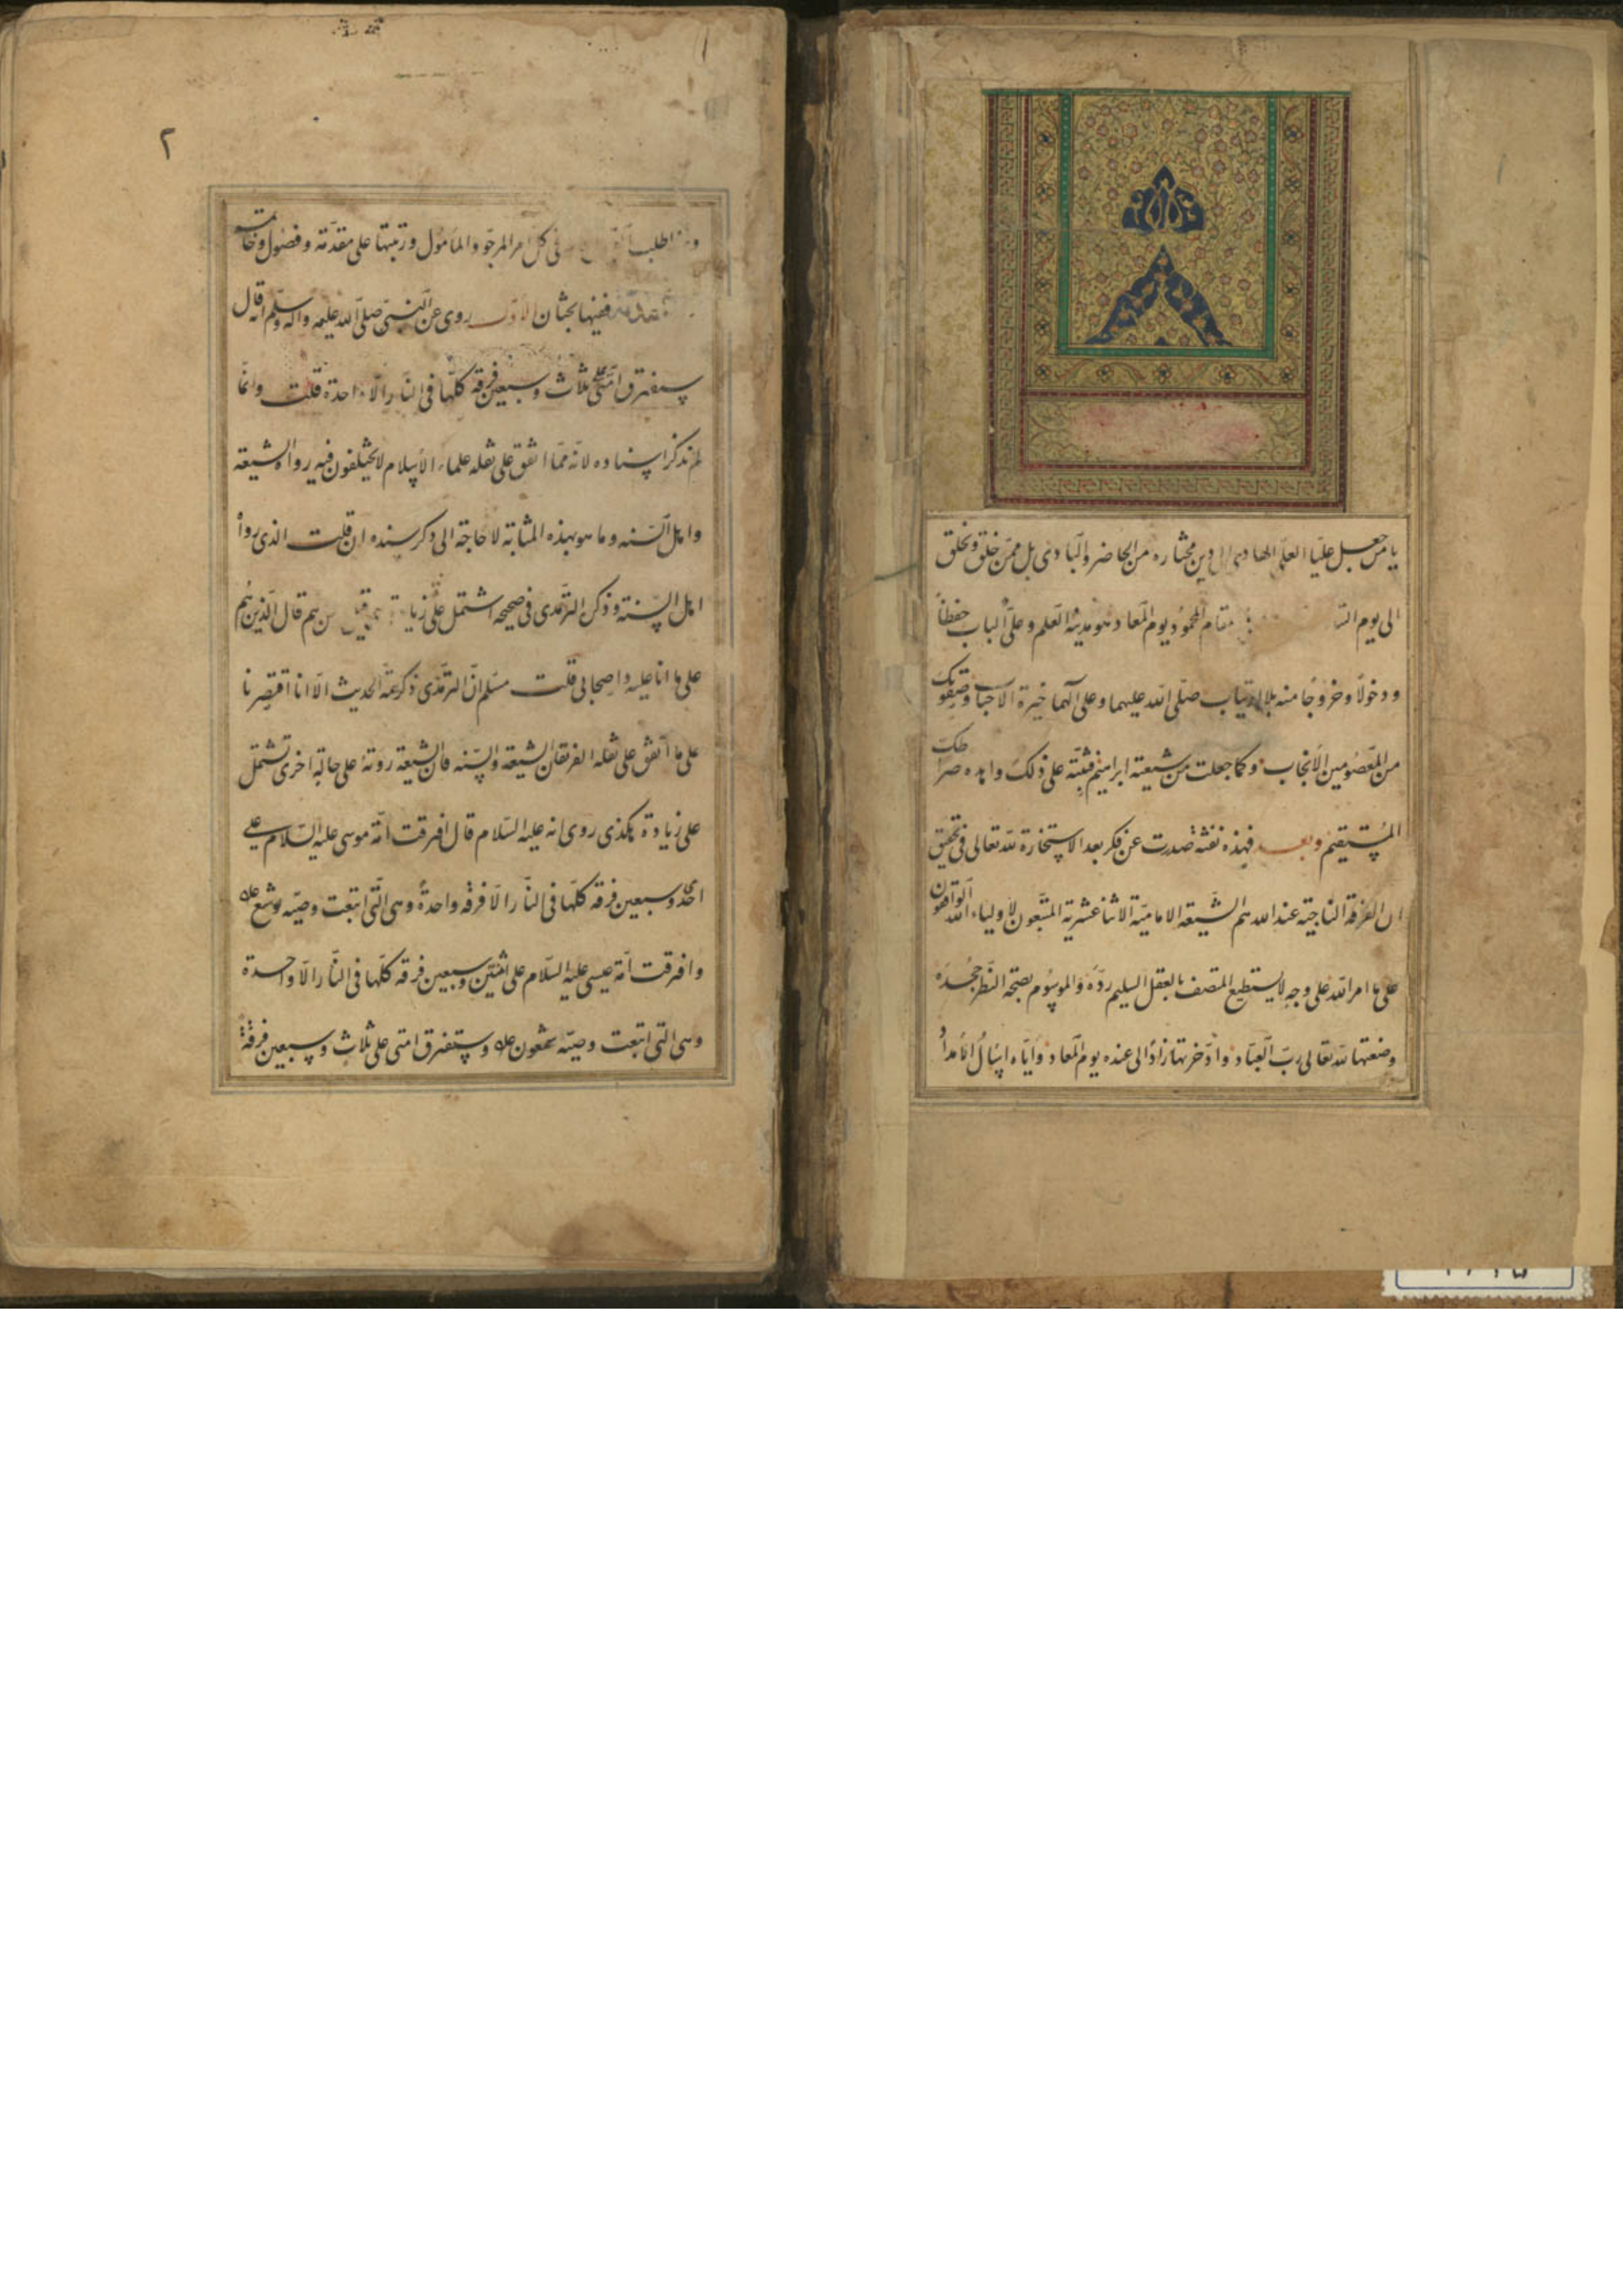 يا من جعل عليّا العلم الهادى الى دين مختاره من الحاضر والبادى بل ممّن خلق ويخلق
الى يوم مقام المحمود يوم المعاد هو مدينة العلم وعلىّ الباب حفظاً
ودخولاً وخروجاً منه بلا ارتياب صلّى الله عليهما وعلى آلهما خيرة الاحباب وصفوتك
من المعصومين الأنجاب وكما جعلت من شيعته ابراهيم فثبّته على ذلك واهده صراطك
المستقيم وبعد فهذه نفثة صدرت عن فكر بعد الاستخارة لله تعالى فى تحقيق
ان الفرقة الناجية عند الله هم الشيعة الامامية الاثنا عشرية المتبعون لأولياء الله الواقفون
على ما امر الله على وجه لا يستطيع المتصف بالعقل السليم ردّه والموسوم بصحة النظر جحده
وضعتها لله تعالى ربّ العباد وادّخرتها زاداً الى عنده يوم المعاد وايّاه اسأل الامداد
٢
اطلب فى كل امر المرجوّ والمأمول ورتبتها على مقدّمة وفصول وخاتمة
ففيها بحثان الاوّل روى عن النبىّ صلّى الله عليه وآله وسلّم انّه قال
ستفترق امّتى على ثلاث وسبعين فرقة كلّها فى النار الّا واحدة قلت وانّما
لم نذكر اسناده لانّه ممّا اتفق على نقله علماء الأسلام لا يختلفون فيه رواه الشيعة
واهل السّنه وما هو بهذه المثابة لا حاجة الى ذكر سنده ان قلت الذى رواه
اهل السنة وذكره الترمّذى فى صحيحه اشتمل على زيادة هى قيل من هم قال الّذين هم
على ما انا عليه واصحابى قلت مسلم انّ الترمّذى ذكر تتمّة الحديث الّا انا اقتصرنا
على ما اتّفق على نقله الفريقان الشيعة والسّنه فانّ الشيعة روته على حالة اخرى تشتمل
على زيادة هكذى روى انه عليه السّلام قال افرقت امّة موسى عليه السّلام على
احدى وسبعين فرقة كلّها فى النّار الّا فرقة واحدة وهى الّتى اتبعت وصيّه يوشع ع
وافرقت امّة عيسى عليه السّلام على اثنتين وسبعين فرقة كلّها فى النّار الّا واحدة
وهى التى اتبعت وصيّه شمعون ع وستفترق امتى على ثلاث وسبعين فرقة